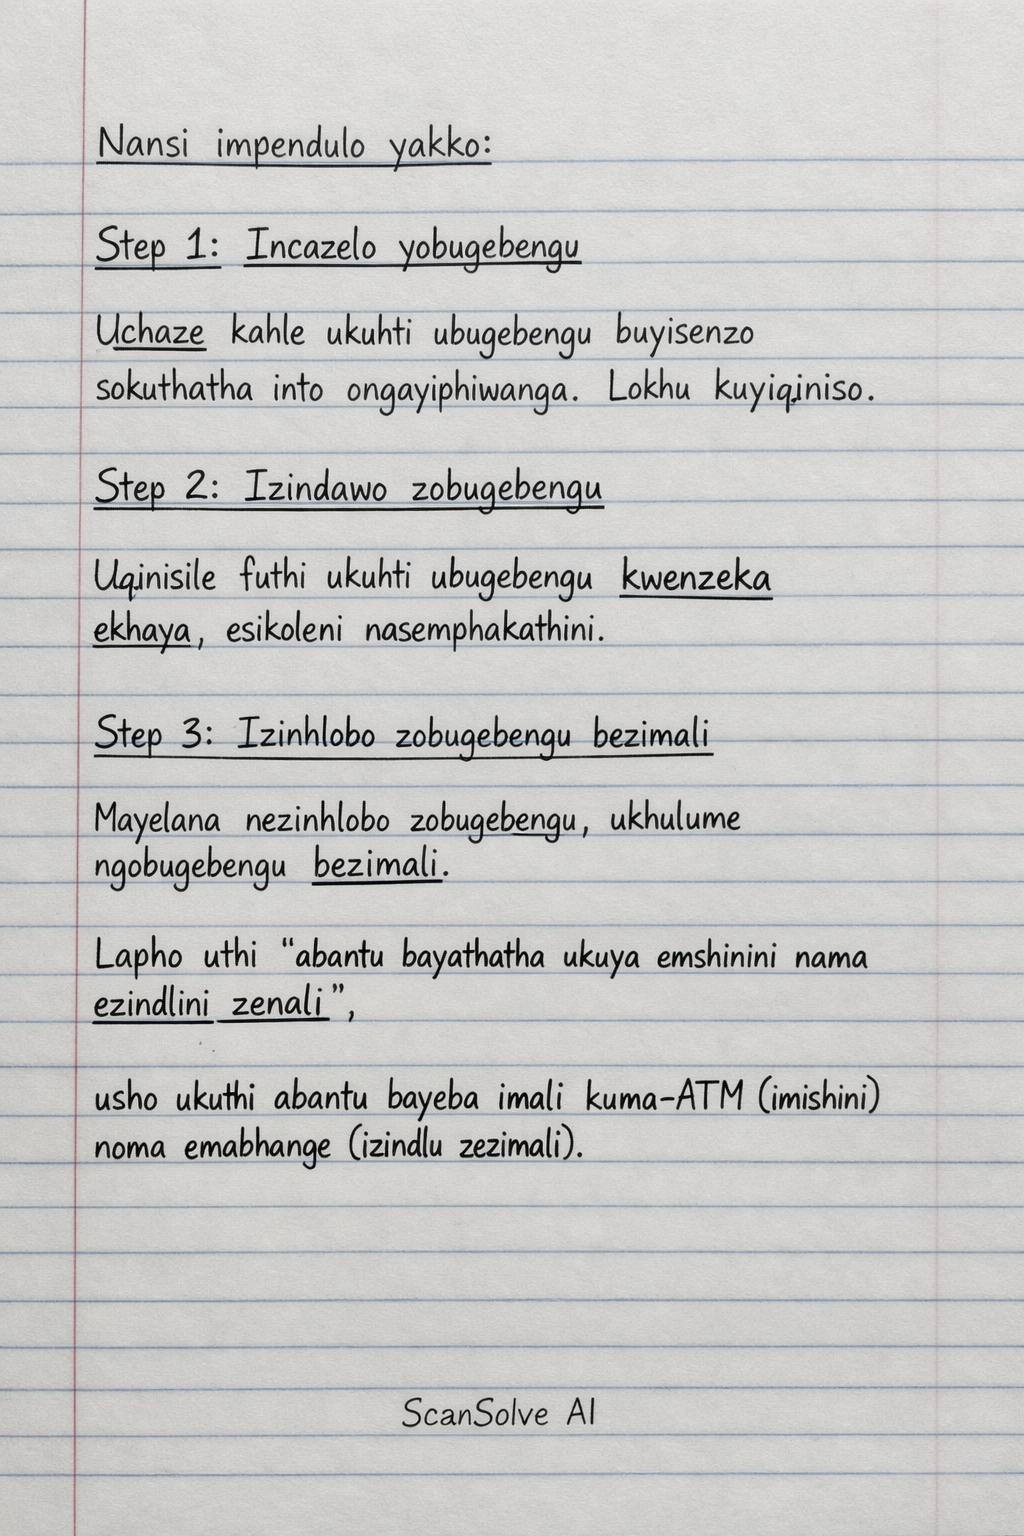 Nansi impendulo yakko:
Step 1: Incazelo yobugebengu
Uchaze kahle ukuhti ubugebengu buyisenzo
sokuthatha into ongayiphiwanga. Lokhu kuyiqiniso.
Step 2: Izindawo zobugebengu
Uqinisile futhi ukuhti ubugebengu kwenzeka
ekhaya, esikoleni nasemphakathini.
Step 3: Izinhlobo zobugebengu bezimali
Mayelana nezinhlobo zobugebengu, ukhulume
ngobugebengu bezimali.
Lapho uthi "abantu bayathatha ukuya emshinini nama
ezindlini zenali",
usho ukuthi abantu bayeba imali kuma-ATM (imishini)
noma emabhange (izindlu zezimali).
ScanSolve AI